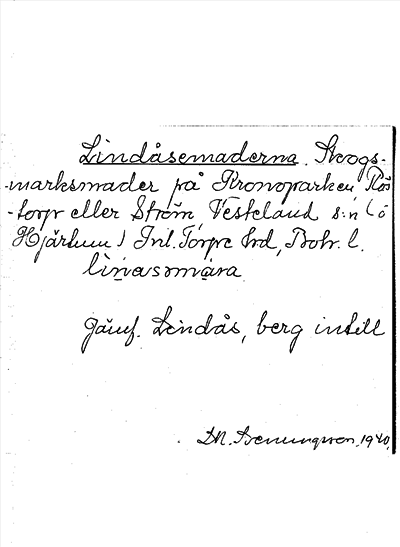 Lindåsemaderna. Skogs-
-marksmader på Kronoparken, Rös
-torp eller Ström, Vesteland s:n (ö
Hjärtum) Inl. Torpe hrd, Boh. l.
linasmara
Jämf. Lindås, berg intill
1940.